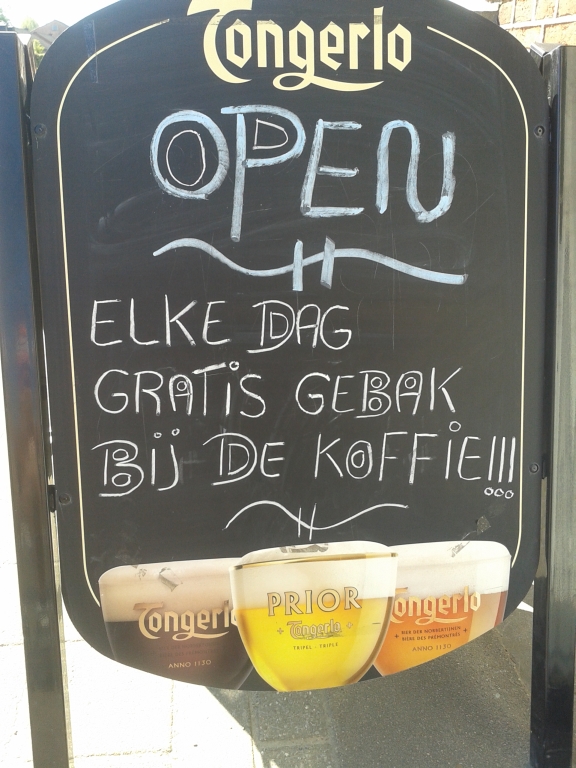 Tongerlo
OPEN
ELKE DAG
GRATIS GEBAK
BIJ DE KOFFIE!!!
Tongerlo
ANNO 1130
PRIOR
Tongerlo
TRIPEL - TRIPLE
Tongerlo
BIER DER NORBERTIJNEN
BIÈRE DES PRÉMONTRÉS
ANNO 1130